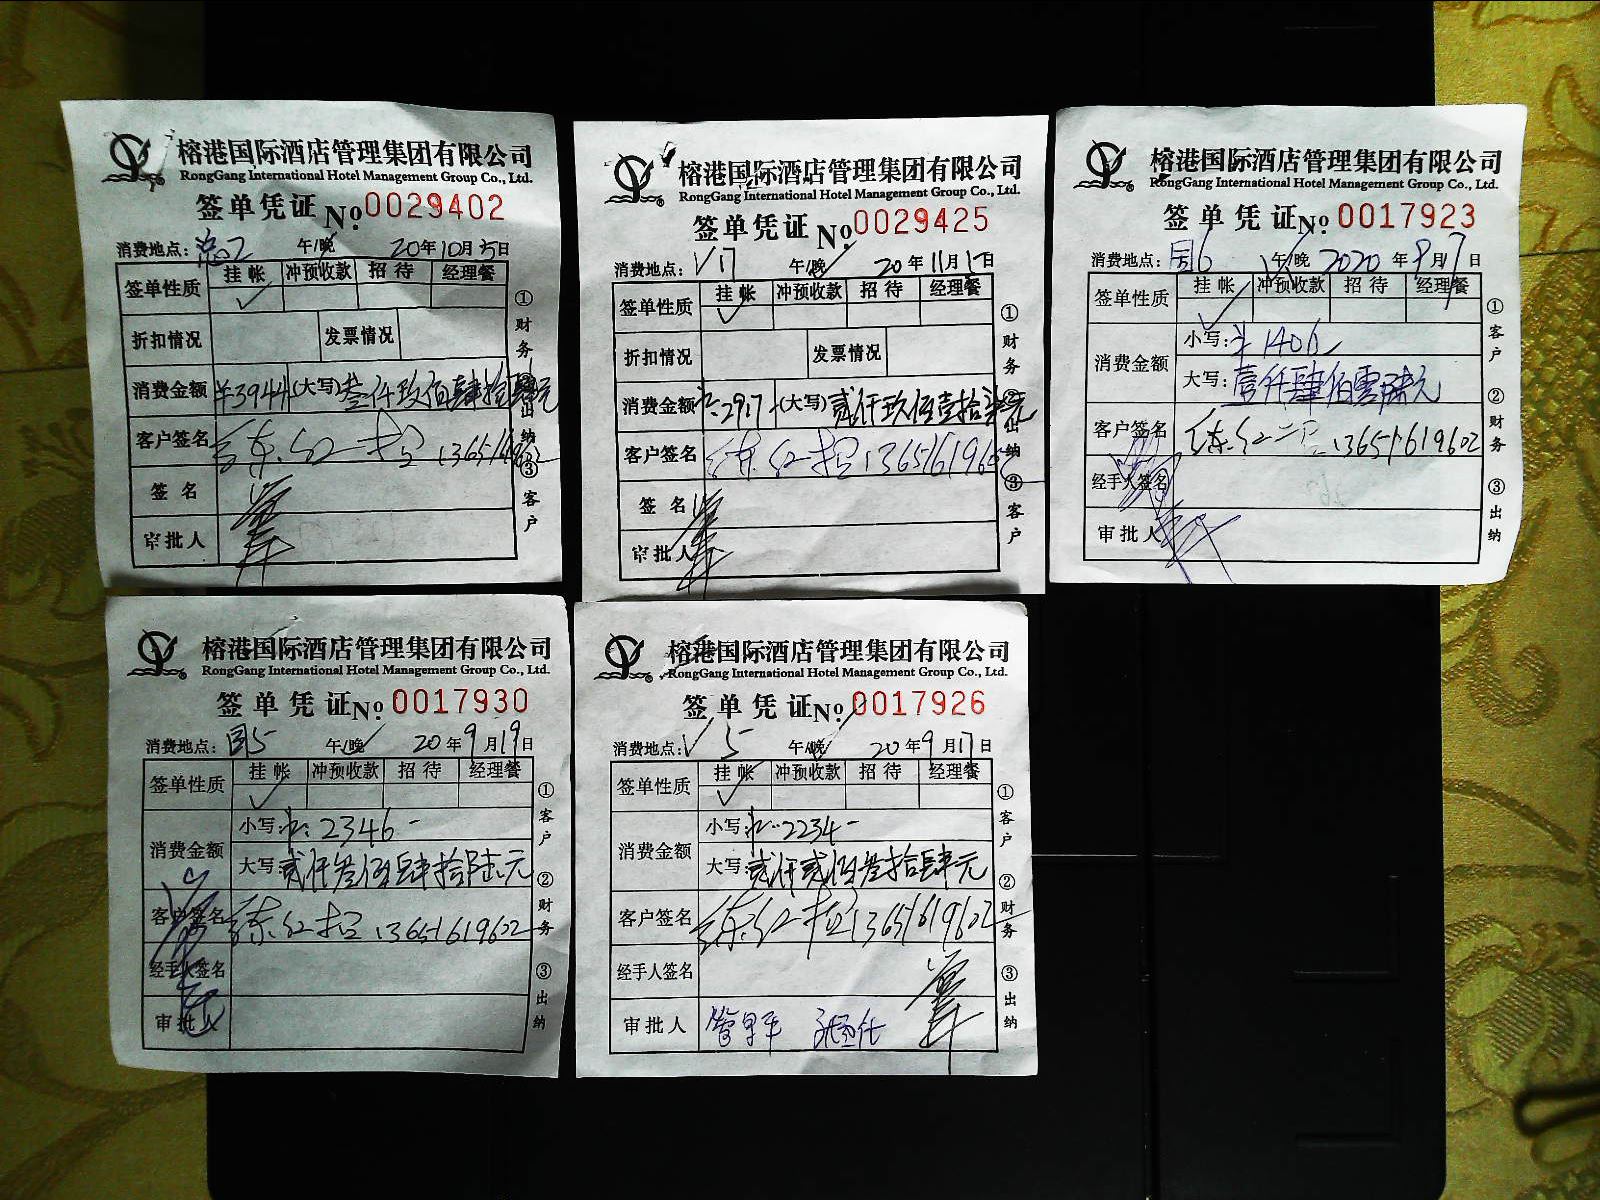 榕港国际酒店管理集团有限公司
RongGang International Hotel Management Group Co., Ltd.
签单凭证 No. 0029402
消费地点: 午/晚 20年10月 日
签单性质 挂帐 冲预收款 招待 经理餐
折扣情况 发票情况
消费金额 ¥3944 (大写) 叁仟玖佰肆拾肆元
客户签名
签名
审批人
①财务 ②出纳 ③客户
榕港国际酒店管理集团有限公司
RongGang International Hotel Management Group Co., Ltd.
签单凭证 No. 0029425
消费地点: V17 午/晚 20年11月 日
签单性质 挂帐 冲预收款 招待 经理餐
折扣情况 发票情况
消费金额 2917- (大写) 贰仟玖佰壹拾柒元
客户签名 13651619602
签名
审批人
①财务 ②出纳 ③客户
榕港国际酒店管理集团有限公司
RongGang International Hotel Management Group Co., Ltd.
签单凭证 No. 0017923
消费地点: 午/晚 2020年9月7日
签单性质 挂帐 冲预收款 招待 经理餐
消费金额 小写: 1406
大写: 壹仟肆佰零陆元
客户签名 13651619602
经手人签名
审批人
①客户 ②财务 ③出纳
榕港国际酒店管理集团有限公司
RongGang International Hotel Management Group Co., Ltd.
签单凭证 No. 0017930
消费地点: 午/晚 20年9月19日
签单性质 挂帐 冲预收款 招待 经理餐
消费金额 小写: 2346-
大写: 贰仟叁佰肆拾陆元
客户签名 13651619602
经手人签名
审批人
①客户 ②财务 ③出纳
榕港国际酒店管理集团有限公司
RongGang International Hotel Management Group Co., Ltd.
签单凭证 No. 0017926
消费地点: V5 午/晚 20年9月17日
签单性质 挂帐 冲预收款 招待 经理餐
消费金额 小写: 2234-
大写: 贰仟贰佰叁拾肆元
客户签名 13651619602
经手人签名
审批人
①客户 ②财务 ③出纳